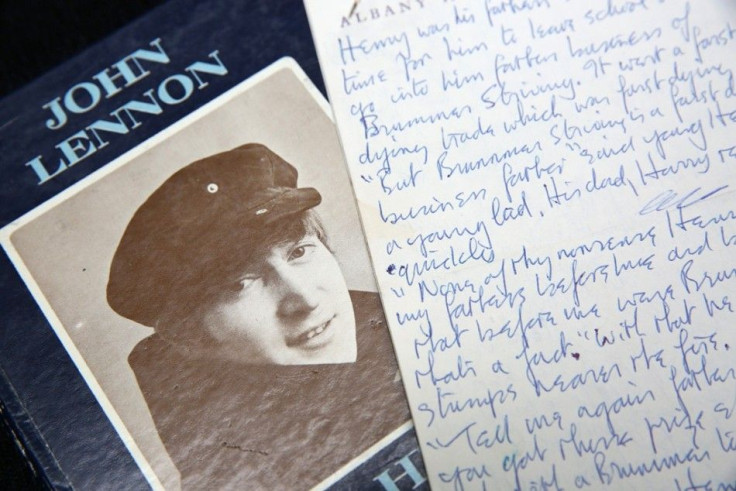 JOHN
LENNON
H
ALBANY
Henry was his fathers
time for him to leave school
go into him fathers business of
Brummer Striving. It went a farst
dying trade which was farst dying
"But Brummer Striving is a farst d
business farther" said young He
a young lad. His dad, Harry re
quickly
"None of thy nonsense Henr
my fathers before me and b
that before me were Brum
thats a fact." With that he
stumps nearer the fire.
"Tell me again father
you got there prize
with a Brummer
Hen